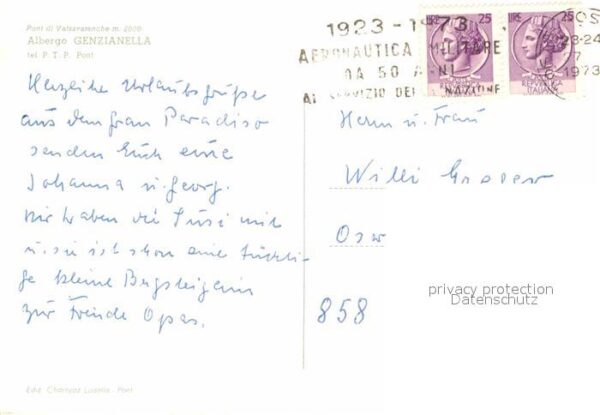 Pont di Valsavaranche m. 2000
Albergo GENZIANELLA
tel P. T. P. Pont
Herzliche Urlaubsgrüße
aus dem gran Paradiso
senden Euch eure
Johanna u. Georg.
Wir haben die Susi mit
u. sie ist schon eine tüchti-
ge kleine Bergsteigerin
zur Freude Opas.
1923-1973
AERONAUTICA MILITARE
DA 50 ANNI
AL SERVIZIO DELLA NAZIONE
LIRE 25
LIRE 25
23-24
1973
Herrn u. Frau
Willi
858
privacy protection
Datenschutz
Ediz. Charryaz Luselia - Pont